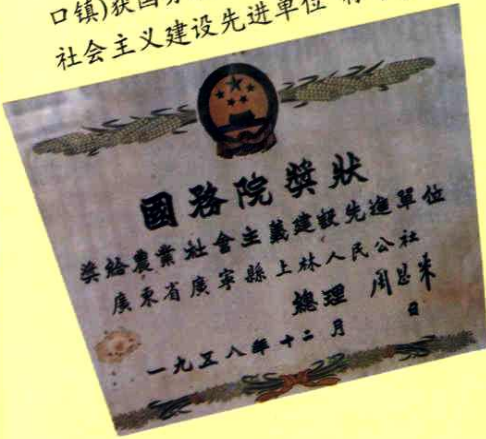 口镇)获国务
社会主义建设先进单位
國务院獎狀
奖給農業社會主義建設先進單位
廣東省廣寧縣上林人民公社
總理 周恩来
一九五八年十二月 日